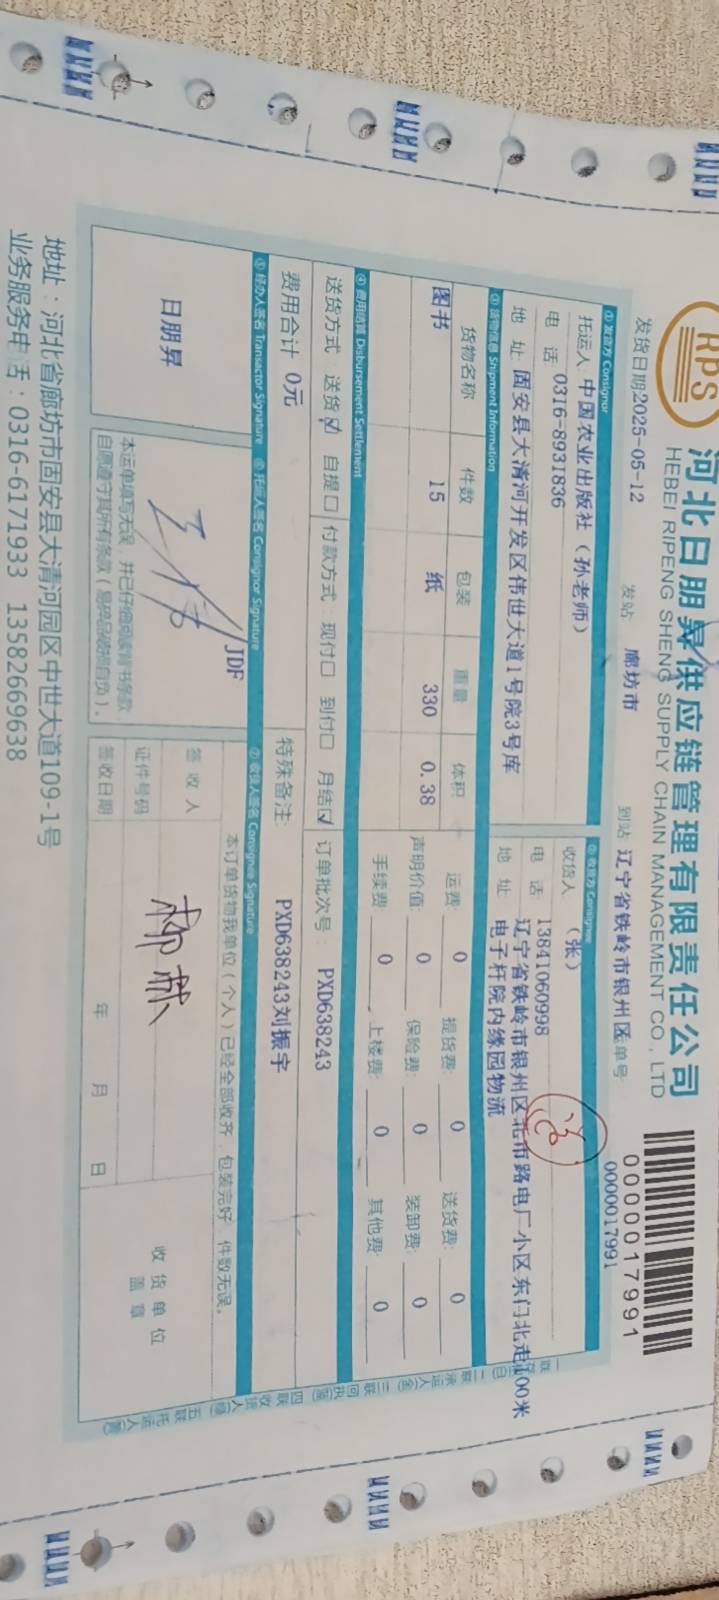 RPS
河北日朋昇供应链管理有限责任公司
HEBEI RIPENG SHENG SUPPLY CHAIN MANAGEMENT CO., LTD
0000017991
发货日期2025-05-12 发站 廊坊市 到站 辽宁省铁岭市银州区 运单号 0000017991
① 发货方 Consignor ② 收货方 Consignee
托运人 中国农业出版社（孙老师） 收货人 （张）
电 话 0316-8931836 电 话 13841060998
地 址 固安县大清河开发区伟世大道1号院3号库 地 址 辽宁省铁岭市银州区北市路电厂小区东门北走100米
电子杆院内缘园物流
③ 货物信息 Shipment Information
货物名称 件数 包装 重量 体积 运费: 0 提货费: 0 送货费: 0
图书 15 纸 330 0.38 声明价值: 0 保险费: 0 装卸费: 0
手续费: 0 上楼费: 0 其他费: 0
④ 费用结算 Disbursement Settlement
送货方式 送货☑ 自提□ 付款方式: 现付□ 到付□ 月结☑ 订单批次号: PXD638243
费用合计 0元 特殊备注: PXD638243刘振宇
⑤ 经办人签名 Transactor Signature ⑥ 托运人签名 Consignor Signature ⑦ 收货人签名 Consignee Signature
日朋昇
JDF
本订单货物我单位（个人）已经全部收齐，包装完好，件数无误。
签 收 人
证件号码
签收日期 年 月 日
收货单位
盖 章
本运单填写无误，并已仔细阅读背书条款，
自愿遵守其所有条款（易碎品破损自负）。
地址：河北省廊坊市固安县大清河园区中世大道109-1号
业务服务电话：0316-6171933 13582669638